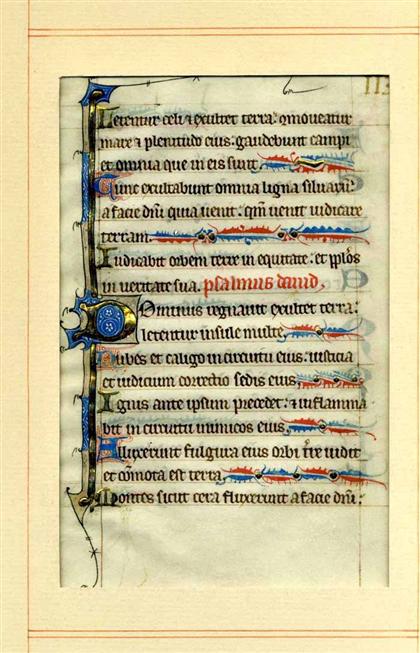 Letentur celi ⁊ exultet terra: ꝯmoueatur
mare ⁊ plenitudo eius: gaudebunt campi
et omnia que in eis sunt.
Tunc exultabunt omnia ligna siluaꝝ:
a facie dñi quia uenit: qm̃ uenit iudicare
terram.
Iudicabit orbem terre in equitate: et pp̃los
in ueritate sua. psalmus dauid,
Dominus regnauit exultet terra:
letentur insule multe,
Nubes et caligo in circuitu eius: iusticia
et iudicium correctio sedis eius,
Ignis ante ipsum precedet: ⁊ inflamma
bit in circuitu inimicos eius,
Alluxerunt fulgura eius orbi tr̃e uidit
et cõmota est terra,
Montes sicut cera fluxerunt a facie dñi: